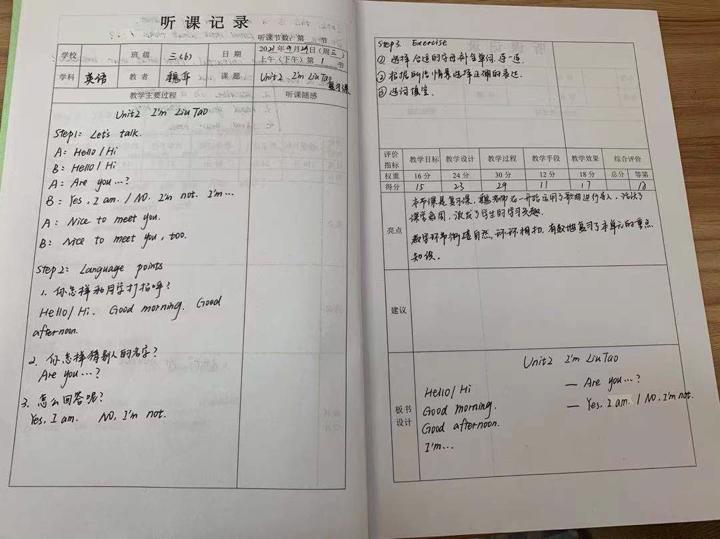 听课记录
听课节数：第 节
学校 班级 三（6） 日期 2021年9月29日（周三）
上午（下午）第1节
学科 英语 教者 课题 Unit2 I'm Liu Tao
复习课
教学主要过程 听课随感
Unit2 I'm Liu Tao
Step1: Let's talk.
A: Hello / Hi
B: Hello / Hi
A: Are you...?
B: Yes, I am. / No. I'm not. I'm...
A: Nice to meet you.
B: Nice to meet you, too.
Step2: Language points
1. 你怎样和同学打招呼？
Hello / Hi. Good morning. Good
afternoon.
2. 你怎样猜别人的名字？
Are you...?
3. 怎么回答呢？
Yes, I am. No, I'm not.
Step3 Exercise
① 选择合适的字母补全单词，连一连
② 根据所给情景选择正确的表达.
③ 选词填空.
评价指标 教学目标 教学设计 教学过程 教学手段 教学效果 综合评价
权重 16分 24分 30分 12分 18分 总分 等第
得分 15 23 29 11 17
亮点
本节课是复习课，魏老师在一开始运用了歌曲进行导入，活跃了
课堂氛围，激发了学生的学习兴趣.
教学环节衔接自然，环环相扣，有效地复习了本单元的重点
知识。
建议
板书设计
Unit2 I'm Liu Tao
Hello / Hi — Are you...?
Good morning. — Yes, I am. / No, I'm not.
Good afternoon.
I'm...